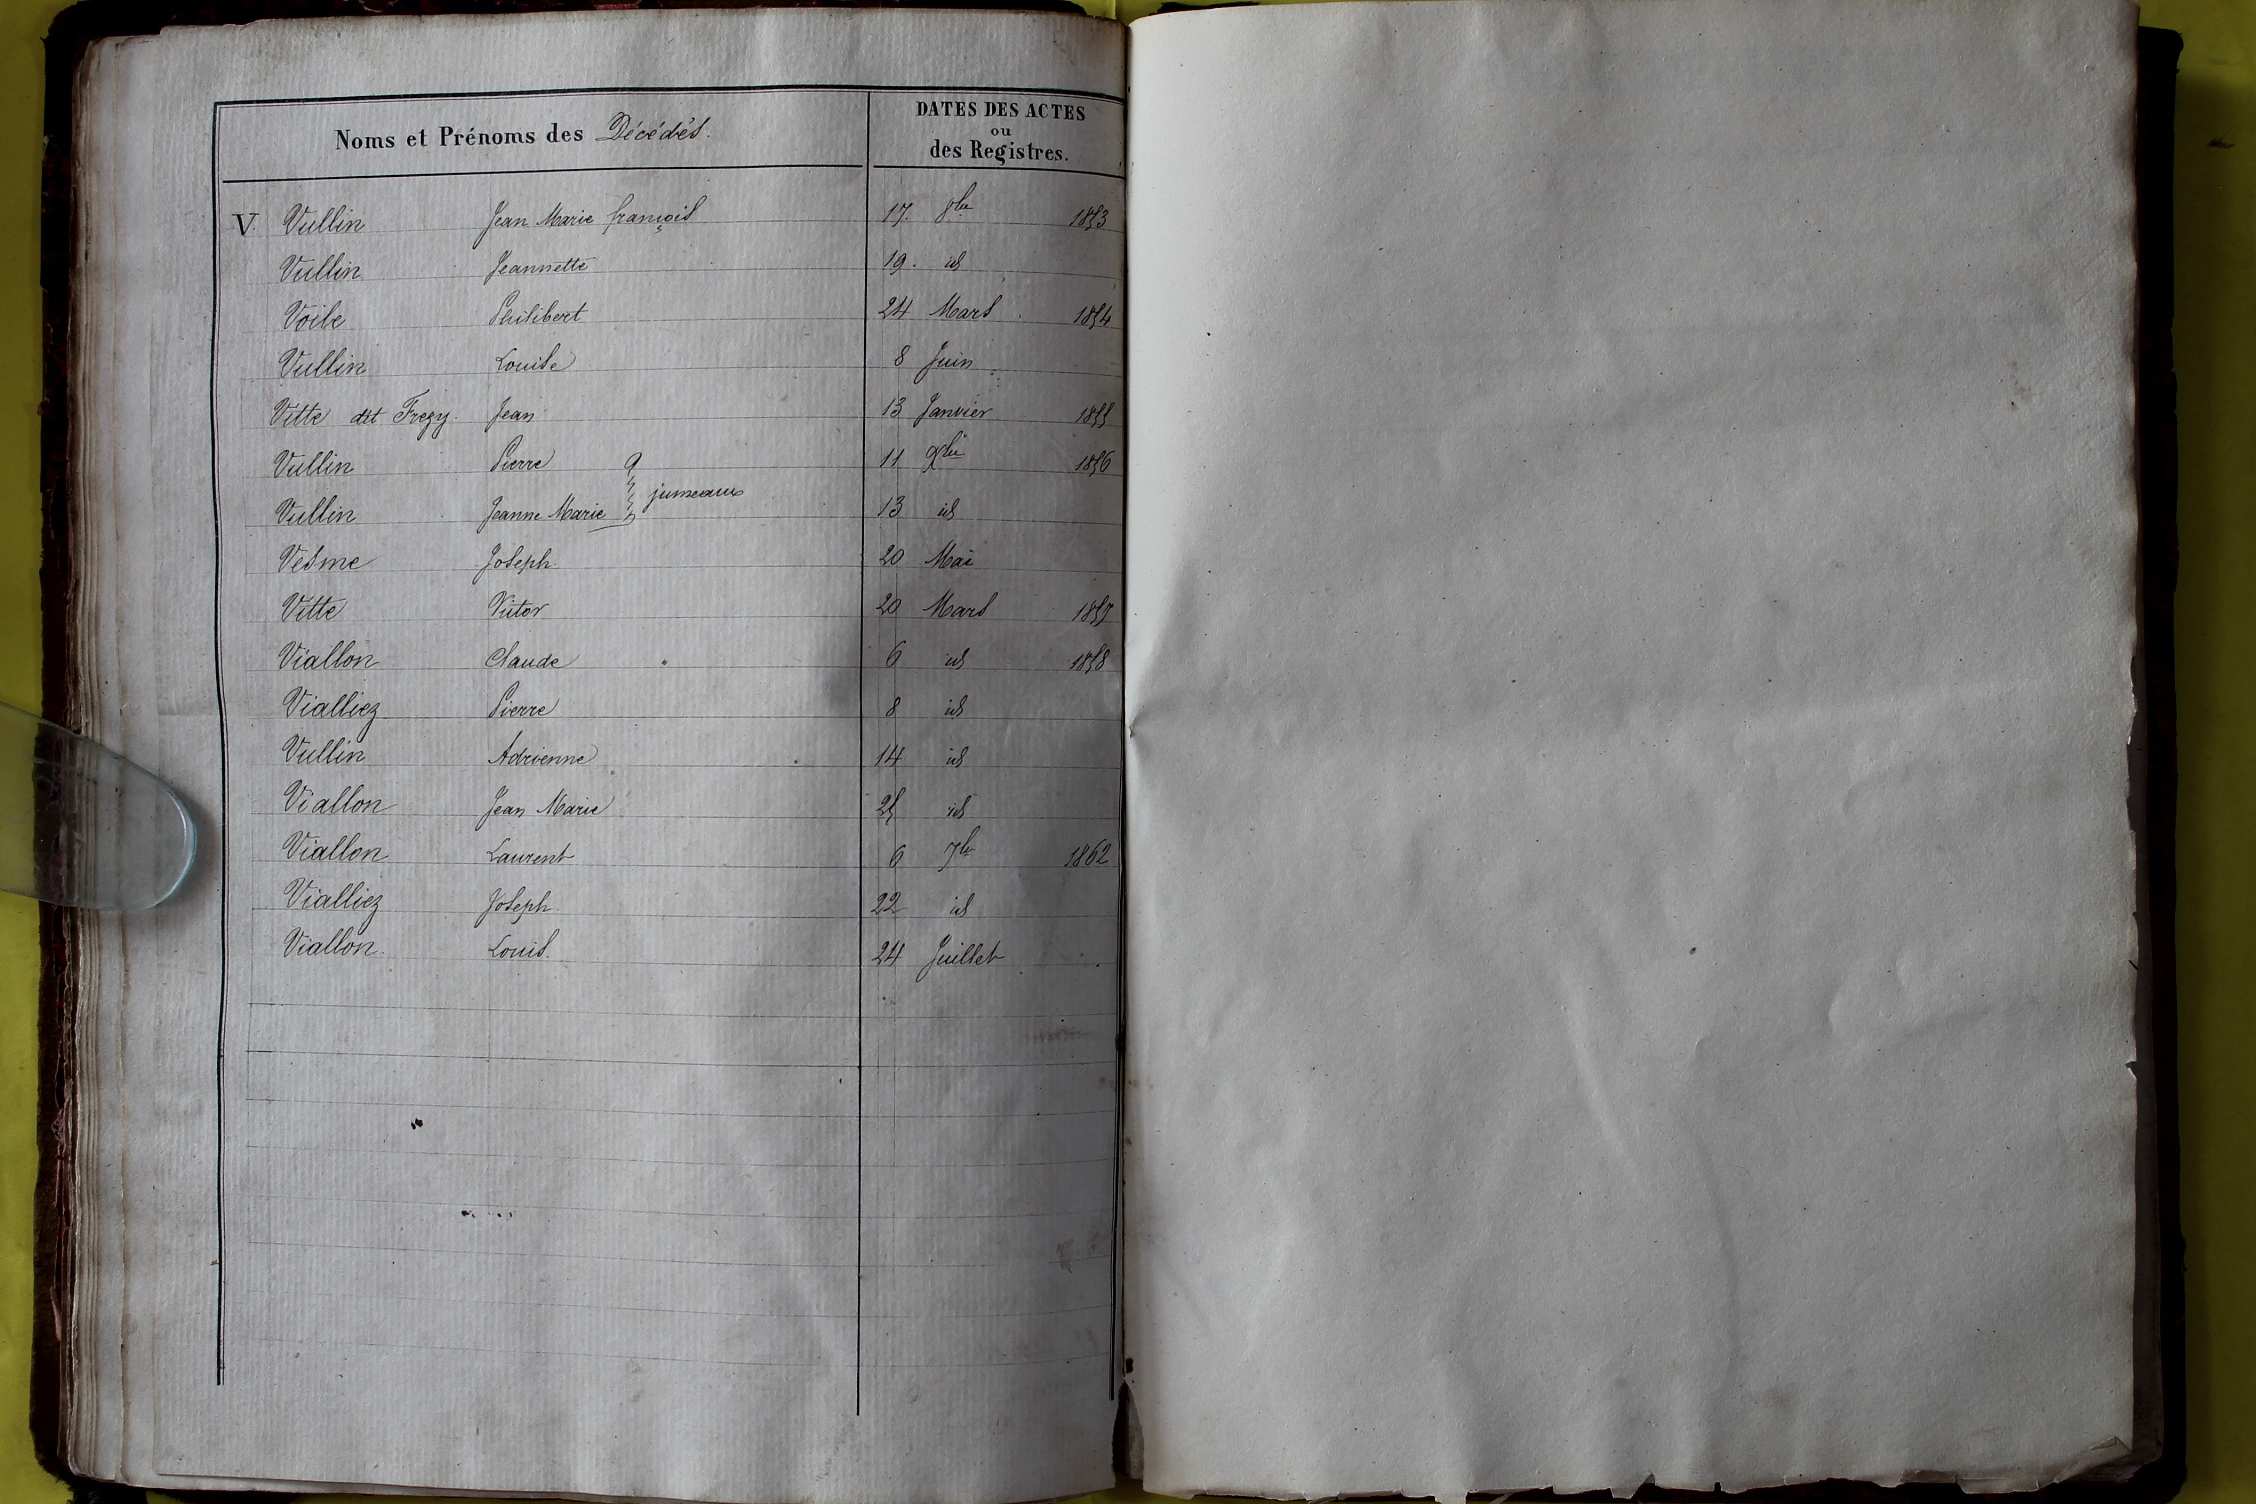 Noms et Prénoms des Décédés.
DATES DES ACTES
ou
des Registres.
V. Vullin Jean Marie françois 17. 8bre 1853
Vullin Jeannette 19. id
Voile Philibert 24 Mars 1854
Vullin Louise 8 Juin
Vitte dit Frezy Jean 13 Janvier 1855
Vullin Pierre 11 1856
jumeaux
Vullin Jeanne Marie 13 id
Vesme Joseph 20 Mai
Vitte Victor 20 Mars 1857
Viallon Claude 6 id 1858
Vialliez Pierre 8 id
Vullin Adrienne 14 id
Viallon Jean Marie 25 id
Viallon Laurent 6 7bre 1862
Vialliez Joseph 22 id
Viallon Louis. 24 Juillet